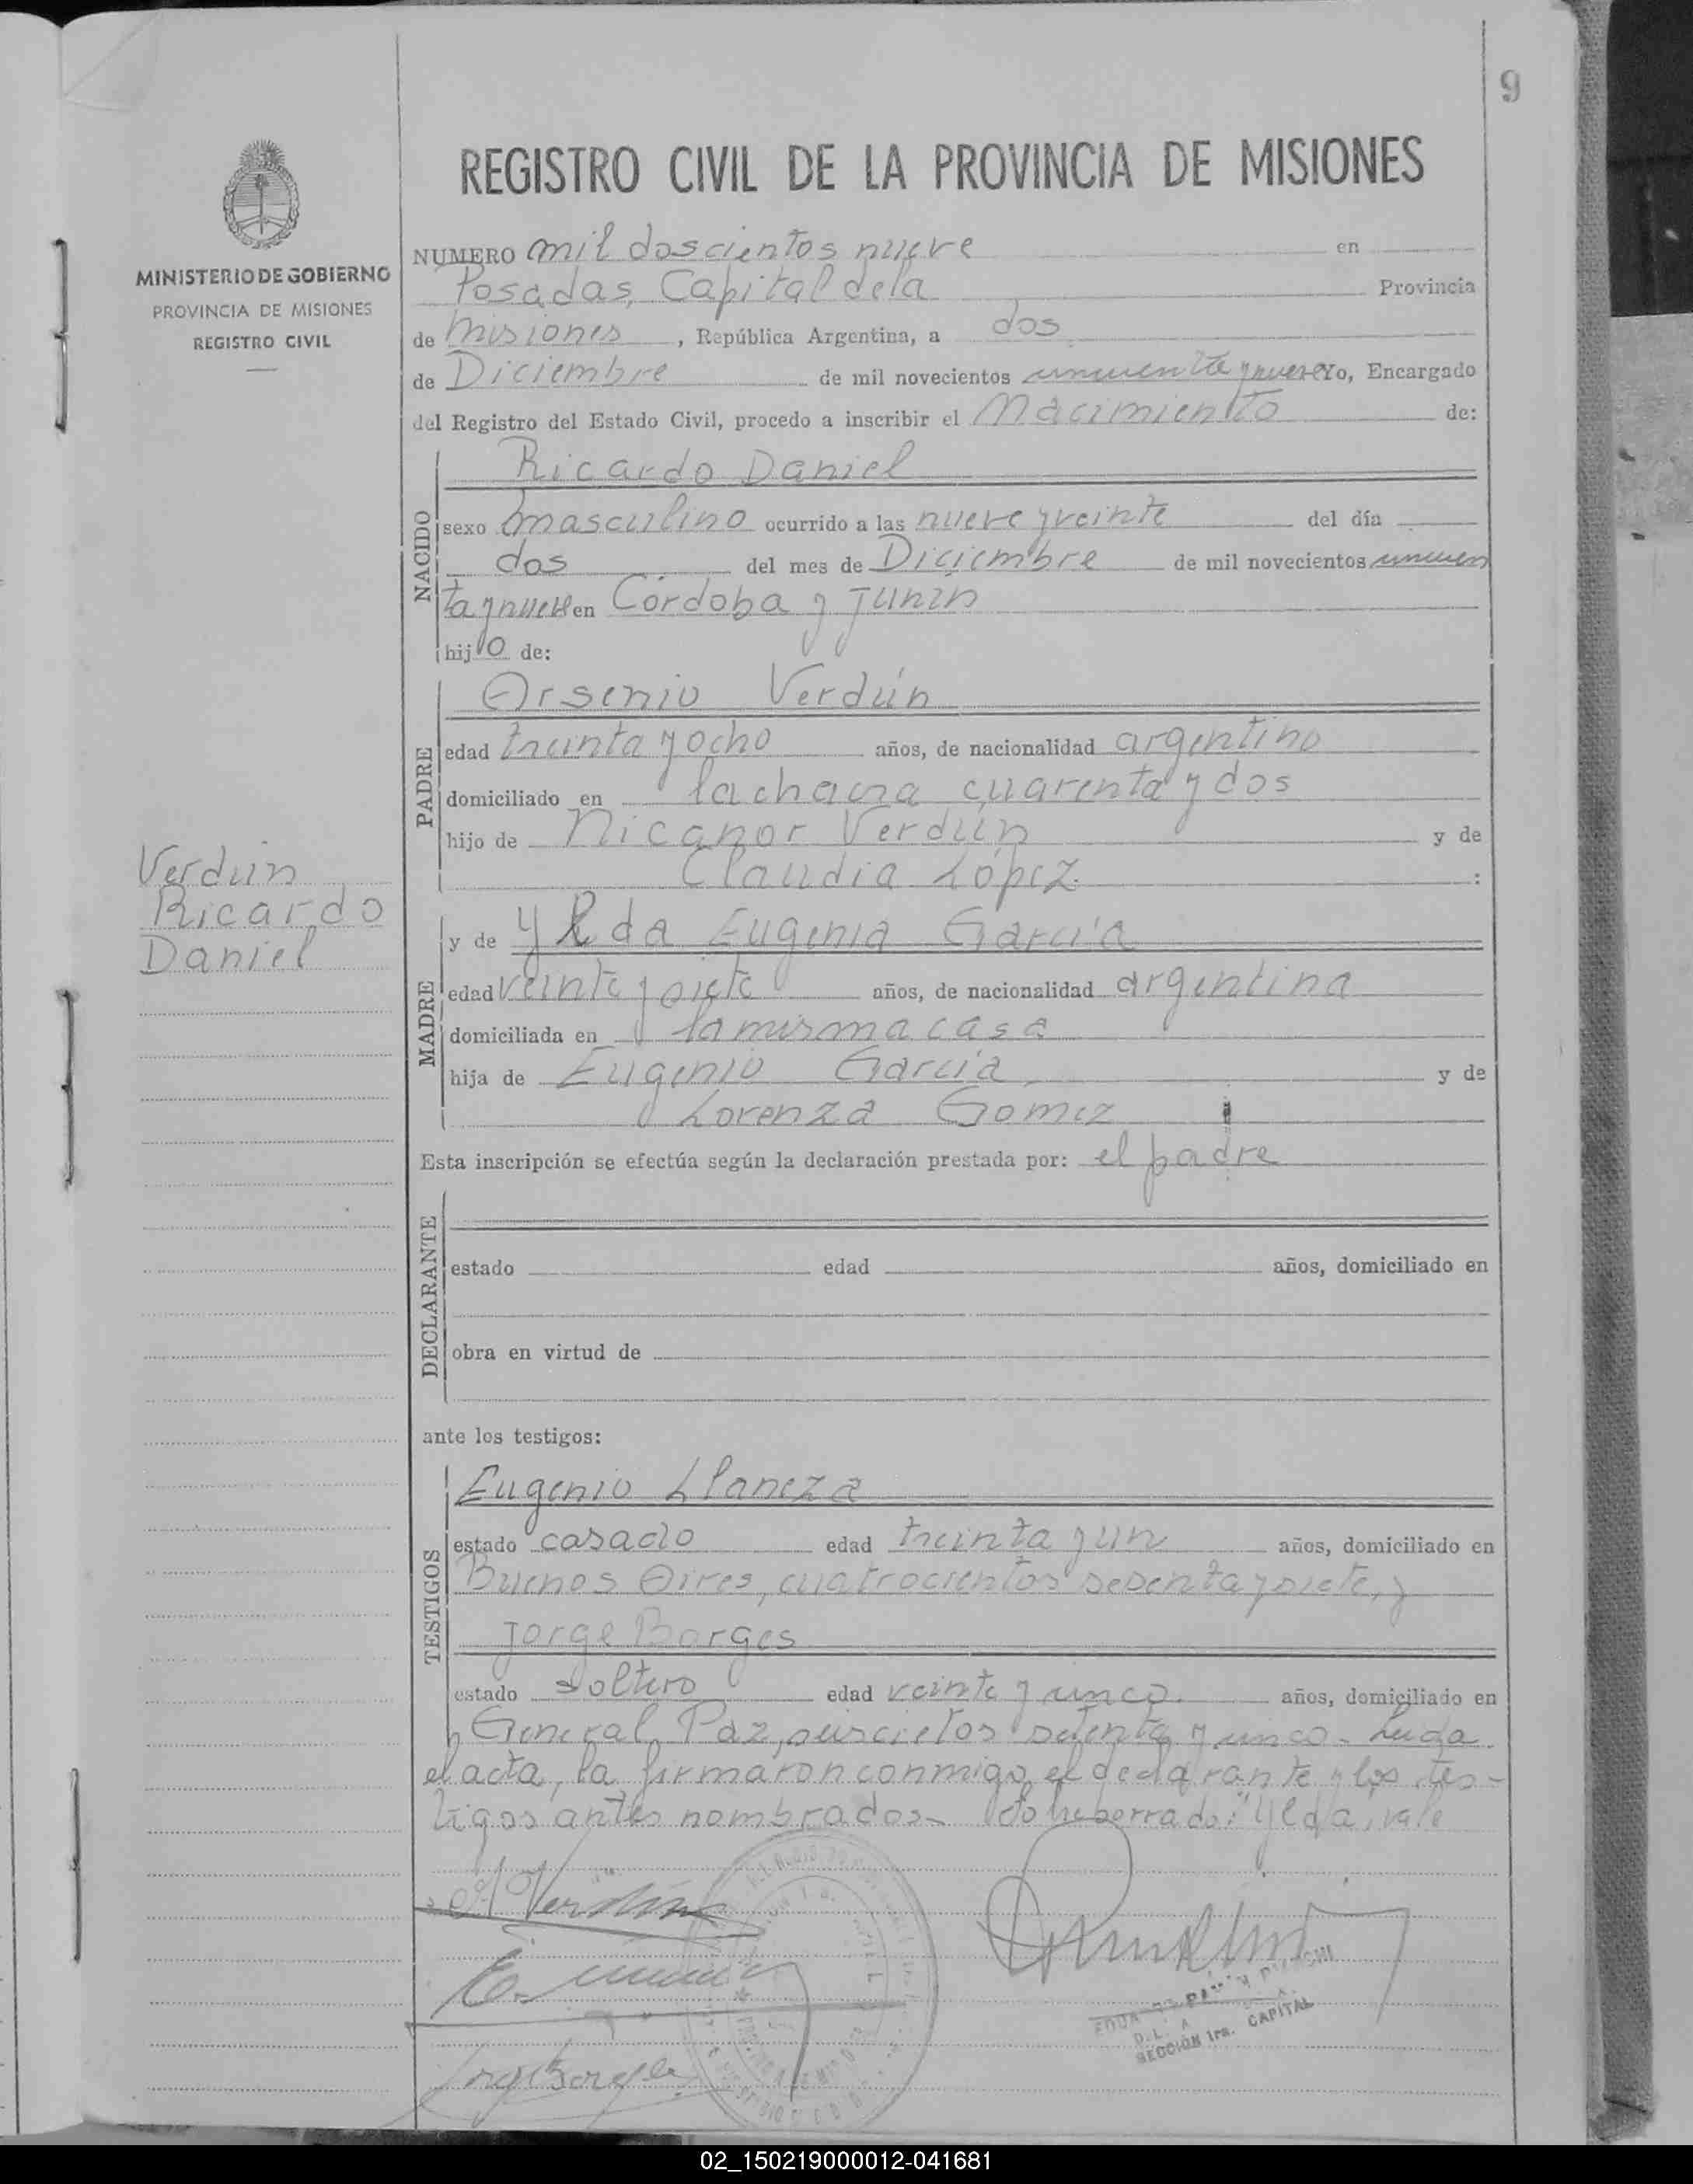 9
REGISTRO CIVIL DE LA PROVINCIA DE MISIONES
MINISTERIO DE GOBIERNO
PROVINCIA DE MISIONES
REGISTRO CIVIL
NUMERO mil doscientos nueve en
Posadas, Capital de la Provincia
de Misiones, República Argentina, a dos
de Diciembre de mil novecientos cincuenta y nueve Yo, Encargado
del Registro del Estado Civil, procedo a inscribir el Nacimiento de:
NACIDO
Ricardo Daniel
sexo masculino ocurrido a las nueve y veinte del día
dos del mes de Diciembre de mil novecientos cincuen
ta y nueve en Córdoba y Junín
hijo de:
PADRE
Arsenio Verdún
edad treinta y ocho años, de nacionalidad argentino
domiciliado en la chacra cuarenta y dos
hijo de Nicanor Verdún y de
Claudia López :
Verdún
Ricardo
Daniel
MADRE
y de Ylda Eugenia García
edad veinte y siete años, de nacionalidad argentina
domiciliada en la misma casa
hija de Eugenio García, y de
Lorenza Gomez
Esta inscripción se efectúa según la declaración prestada por: el padre
DECLARANTE
estado edad años, domiciliado en
obra en virtud de
ante los testigos:
TESTIGOS
Eugenio Llaneza
estado casado edad treinta y un años, domiciliado en
Buenos Aires, cuatrocientos sesenta y siete, y
Jorge Borges
estado soltero edad veinte y cinco. años, domiciliado en
General Paz, seiscietos setenta y cinco - Leida
el acta, la firmaron conmigo, el declarante y los tes-
tigos antes nombrados - borrado: "Ylda", vale
A Verdún
Jorge Borges
SECCIÓN 1ra. CAPITAL
02_150219000012-041681